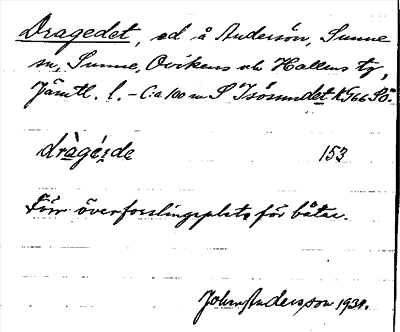 Dragedet, ed å Andersön, Sunne
sn, Sunne, Ovikens och Hallens tg,
Jämtl. l. – C:a 100 m S Isösundet K 566 Sö.
dràgé:de 153
Förr överforslingsplats för båtar.
John Andersson 1934.